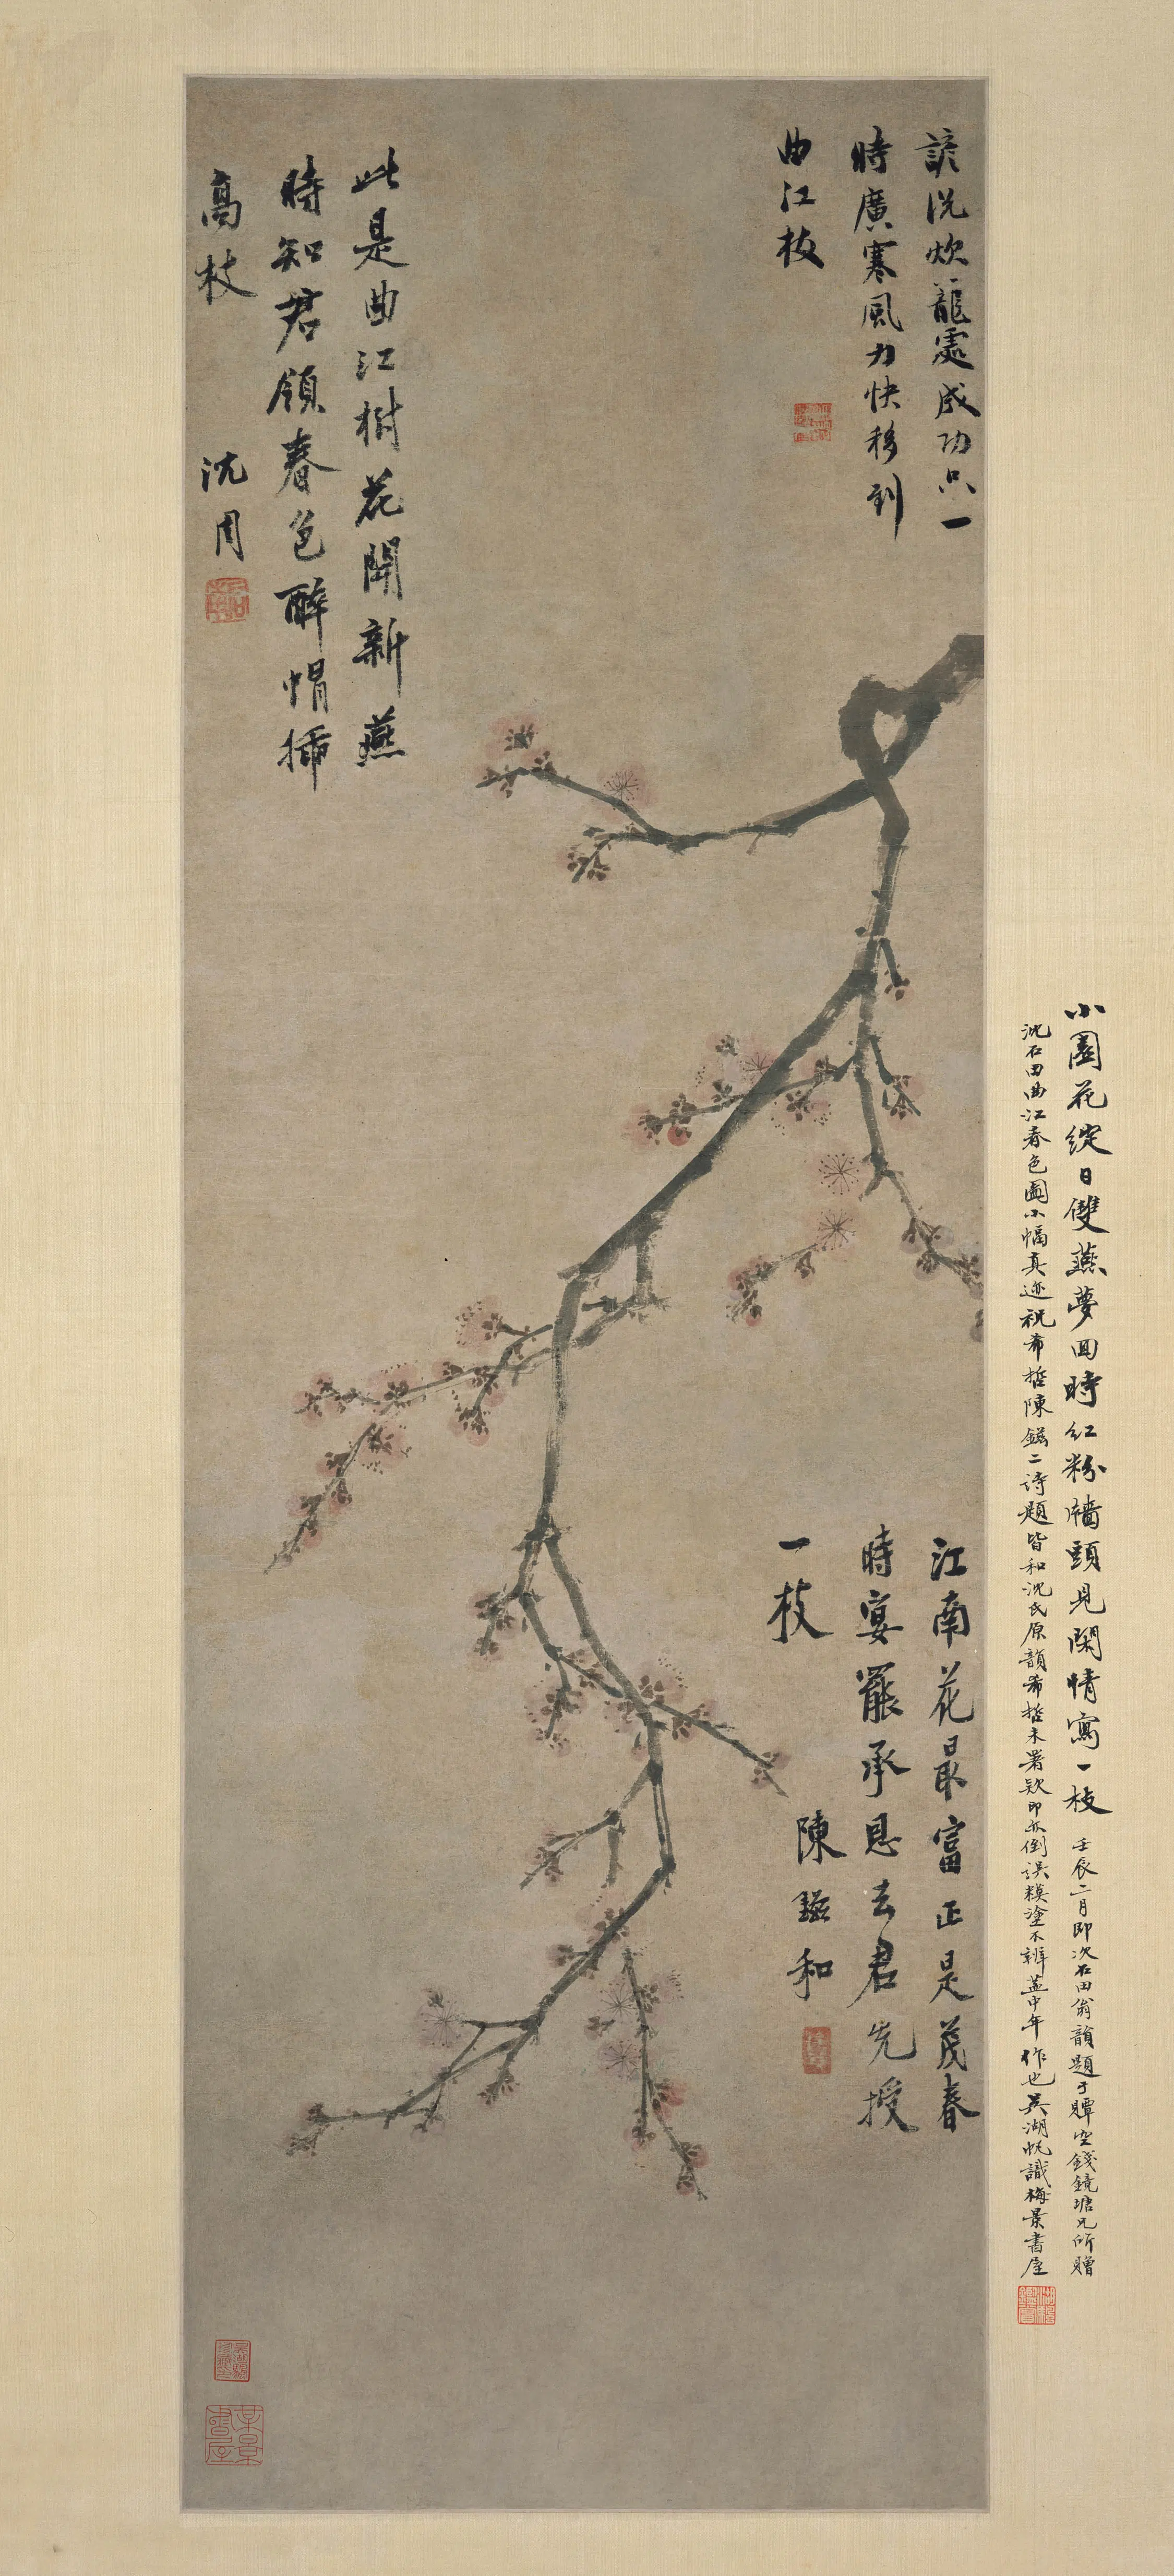 此是曲江樹花開新燕
時知君領春色醉帽插
高枝
沈周
談洗炊籠處成功只一
時廣寒風力快移到
曲江枝
江南花最富正是茂春
時宴罷承恩去君先授
一枝
陳鎡和
小園花綻日雙燕夢回時紅粉牆頭見閑情寫一枝
壬辰二月即次石田翁韻題于 空錢鏡塘兄所贈
沈石田曲江春色圖小幅真迹祝希哲陳鎡二詩題皆和沈氏原韻希哲未署款印亦倒誤糢塗不辨蓋中年作也吳湖帆識梅景書屋